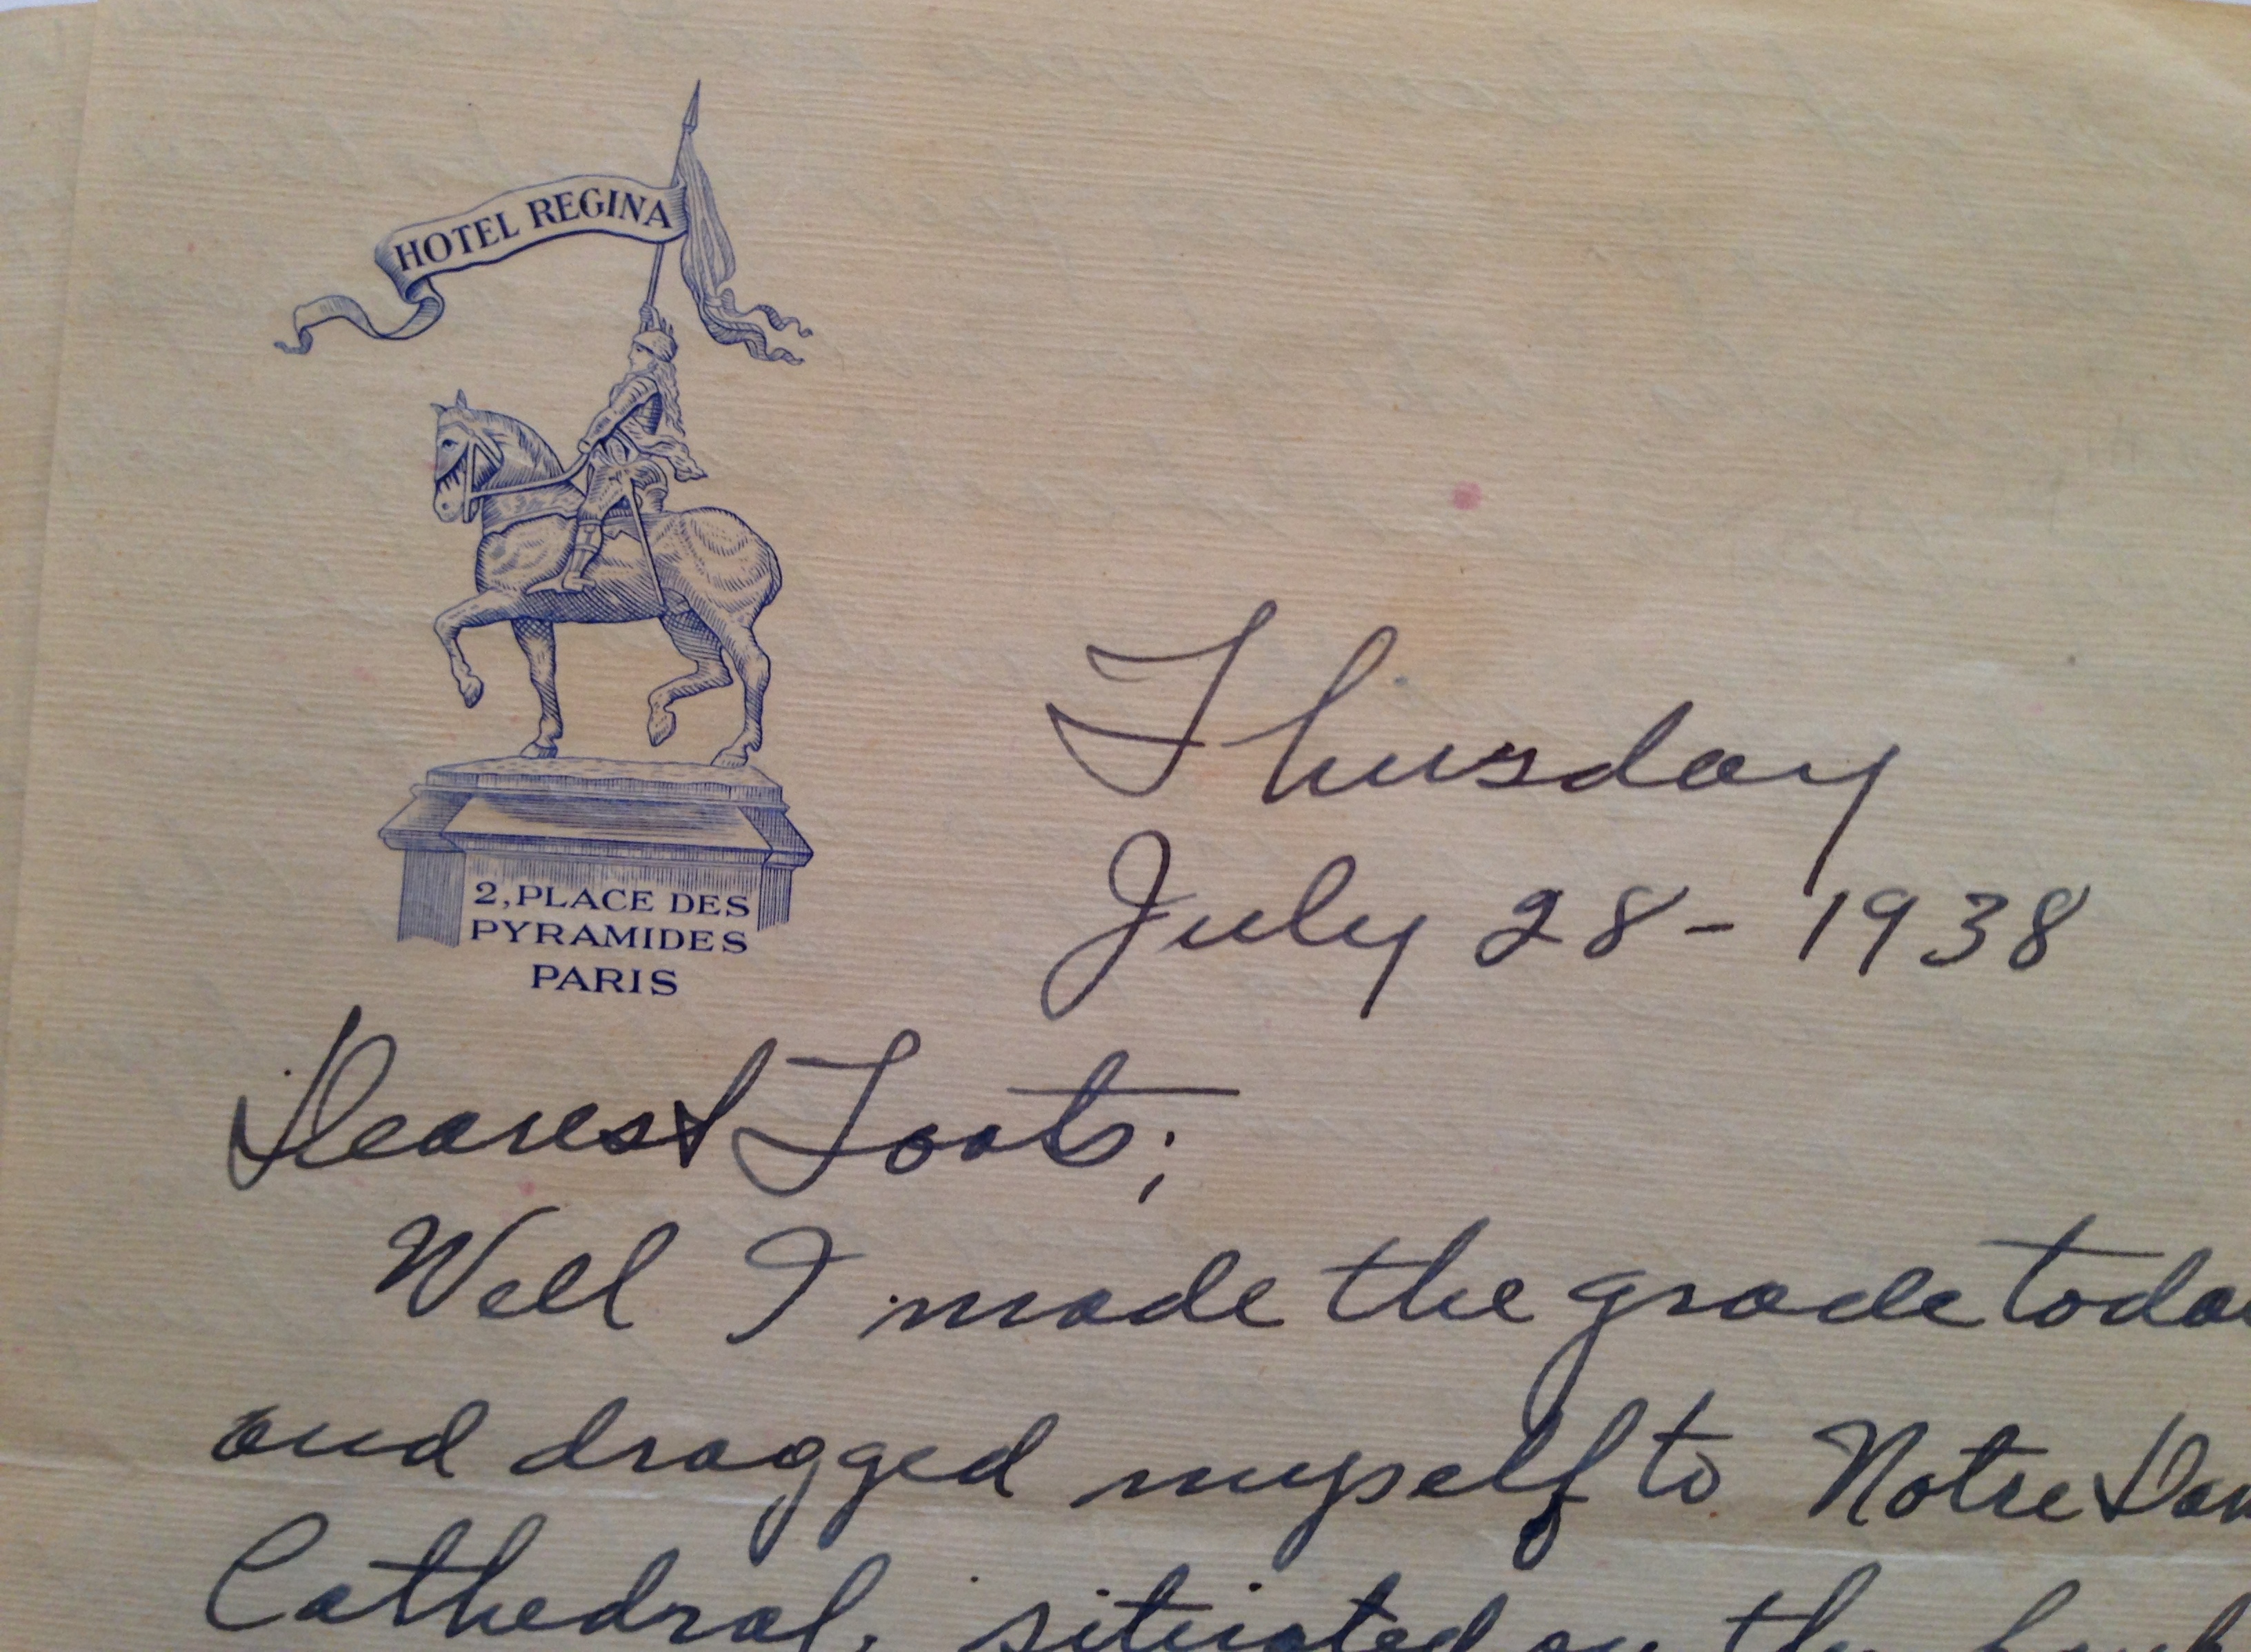 HOTEL REGINA
2, PLACE DES
PYRAMIDES
PARIS
Thursday
July 28 - 1938
Dearest Toots;
Well I made the grade toda
and dragged myself to Notre Dam
Cathedral, situated on the